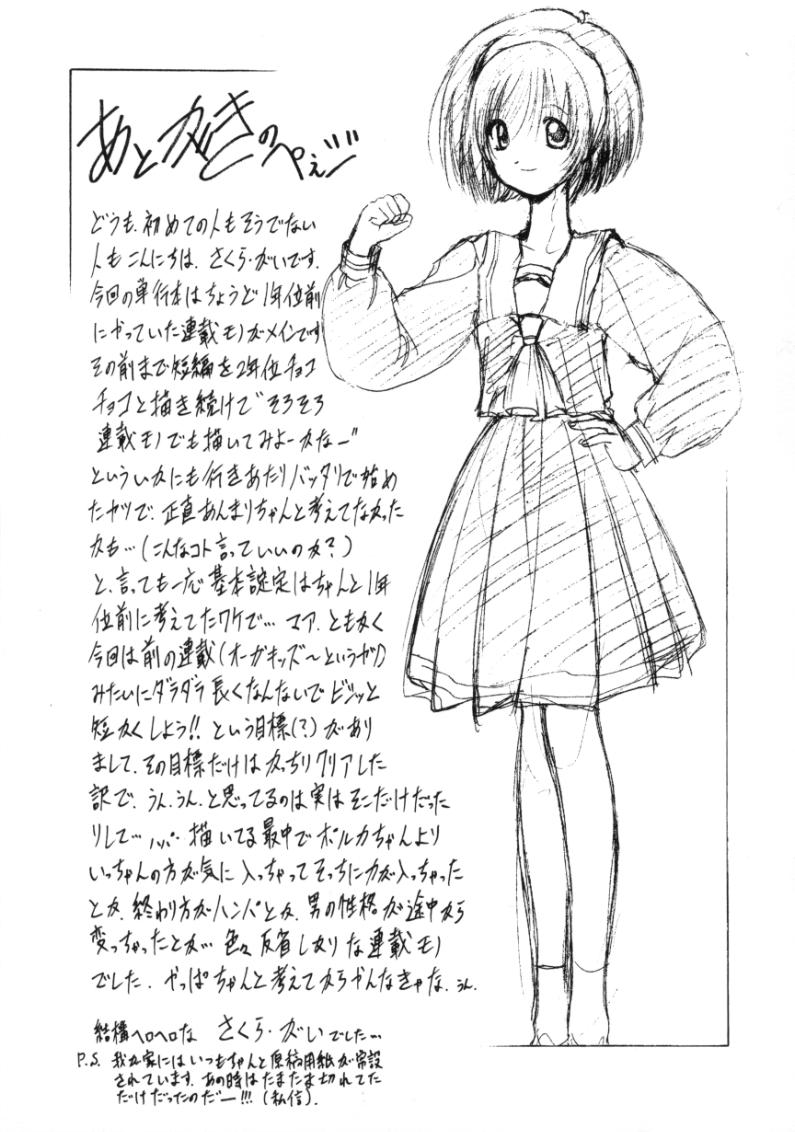 あとがきのぺぇジ
どうも、初めての人もそうでない
人もこんにちは、さくら・がいです。
今回の単行本はちょうど1年位前
にやっていた連載モノがメインです
その前まで短編を2年位チョコ
チョコと描き続けて“そろそろ
連載モノでも描いてみよーかなー”
といういかにも行きあたりバッタリで始め
たヤツで、正直あんまりちゃんと考えてなかった
かも…(こんなコト言っていいのか?)
と、言っても一応基本設定はちゃんと1年
位前に考えてたワケで… マア、ともかく
今回は前の連載(オーガキッズ〜というヤツ)
みたいにダラダラ長くなんないでビシッと
短かくしよう!! という目標(?)があり
まして、その目標だけはかっちりクリアした
訳で、うん、うん、と思ってるのは実はそこだけだった
りして… ハハハ… 描いてる最中でポルカちゃんより
いっちゃんの方が気に入っちゃってそっちに力が入っちゃった
とか、終わり方がハンパとか、男の性格が途中から
変っちゃったとか… 色々反省しきりな連載モノ
でした. やっぱちゃんと考えてからかんなきゃな、うん.
結構ヘロヘロな さくら・がいでした…
P.S. 我が家にはいつもちゃんと原稿用紙が常設
されています、あの時はたまたま切れてた
だけだったのだー!!! (私信).